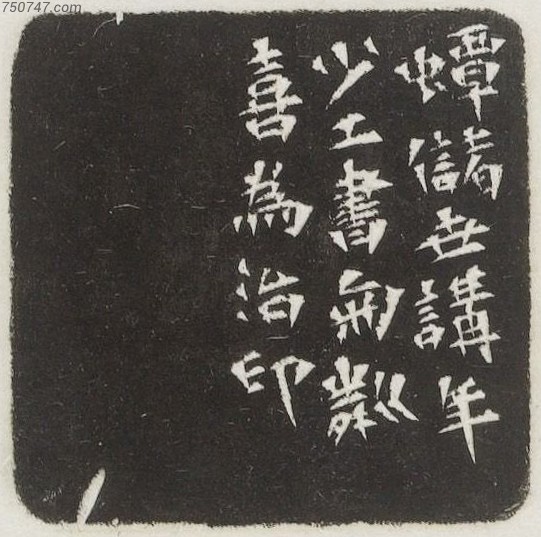 750747.com
蟫儲世講年
少工書
喜為治印